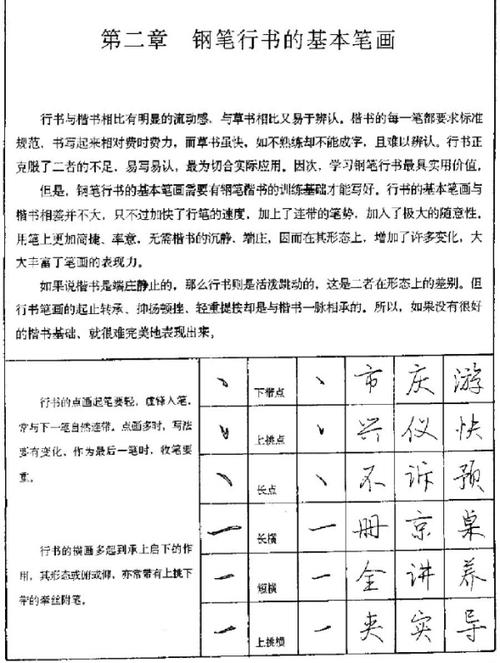 第二章 钢笔行书的基本笔画
行书与楷书相比有明显的流动感、与草书相比又易于辨认。楷书的每一笔都要求标准
规范、书写起来相对费时费力,而草书虽快,如不熟练却不能成字,且难以辨认。行书正
克服了二者的不足,易写易认,最为切合实际应用。因次,学习钢笔行书最具实用价值,
但是,钢笔行书的基本笔画需要有钢笔楷书的训练基础才能写好。行书的基本笔画与
楷书相差并不大,只不过加快了行笔的速度,加上了连带的笔势,加入了极大的随意性。
用笔上更加简捷、率意,无需楷书的沉静、端庄,因而在其形态上,增加了许多变化,大
大丰富了笔画的表现力。
如果说楷书是端庄静止的,那么行书则是活泼跳动的,这是二者在形态上的差别。但
行书笔画的起止转承、抑扬顿挫、轻重提按却是与楷书一脉相承的。所以,如果没有很好
的楷书基础、就很难完美地表现出来。
行书的点画起笔要轻,虚锋入笔,
常与下一笔自然连带。点画多时,写法
要有变化,作为最后一笔时,收笔要
重。
行书的横画多起到承上启下的作
用,其形态或俯或仰,亦常带有上挑下
带的牵丝附笔。
下带点 市 庆 游
上挑点 兴 仪 快
长点 不 诉 预
长横 册 京 桌
短横 全 讲 养
上挑横 夹 实 导